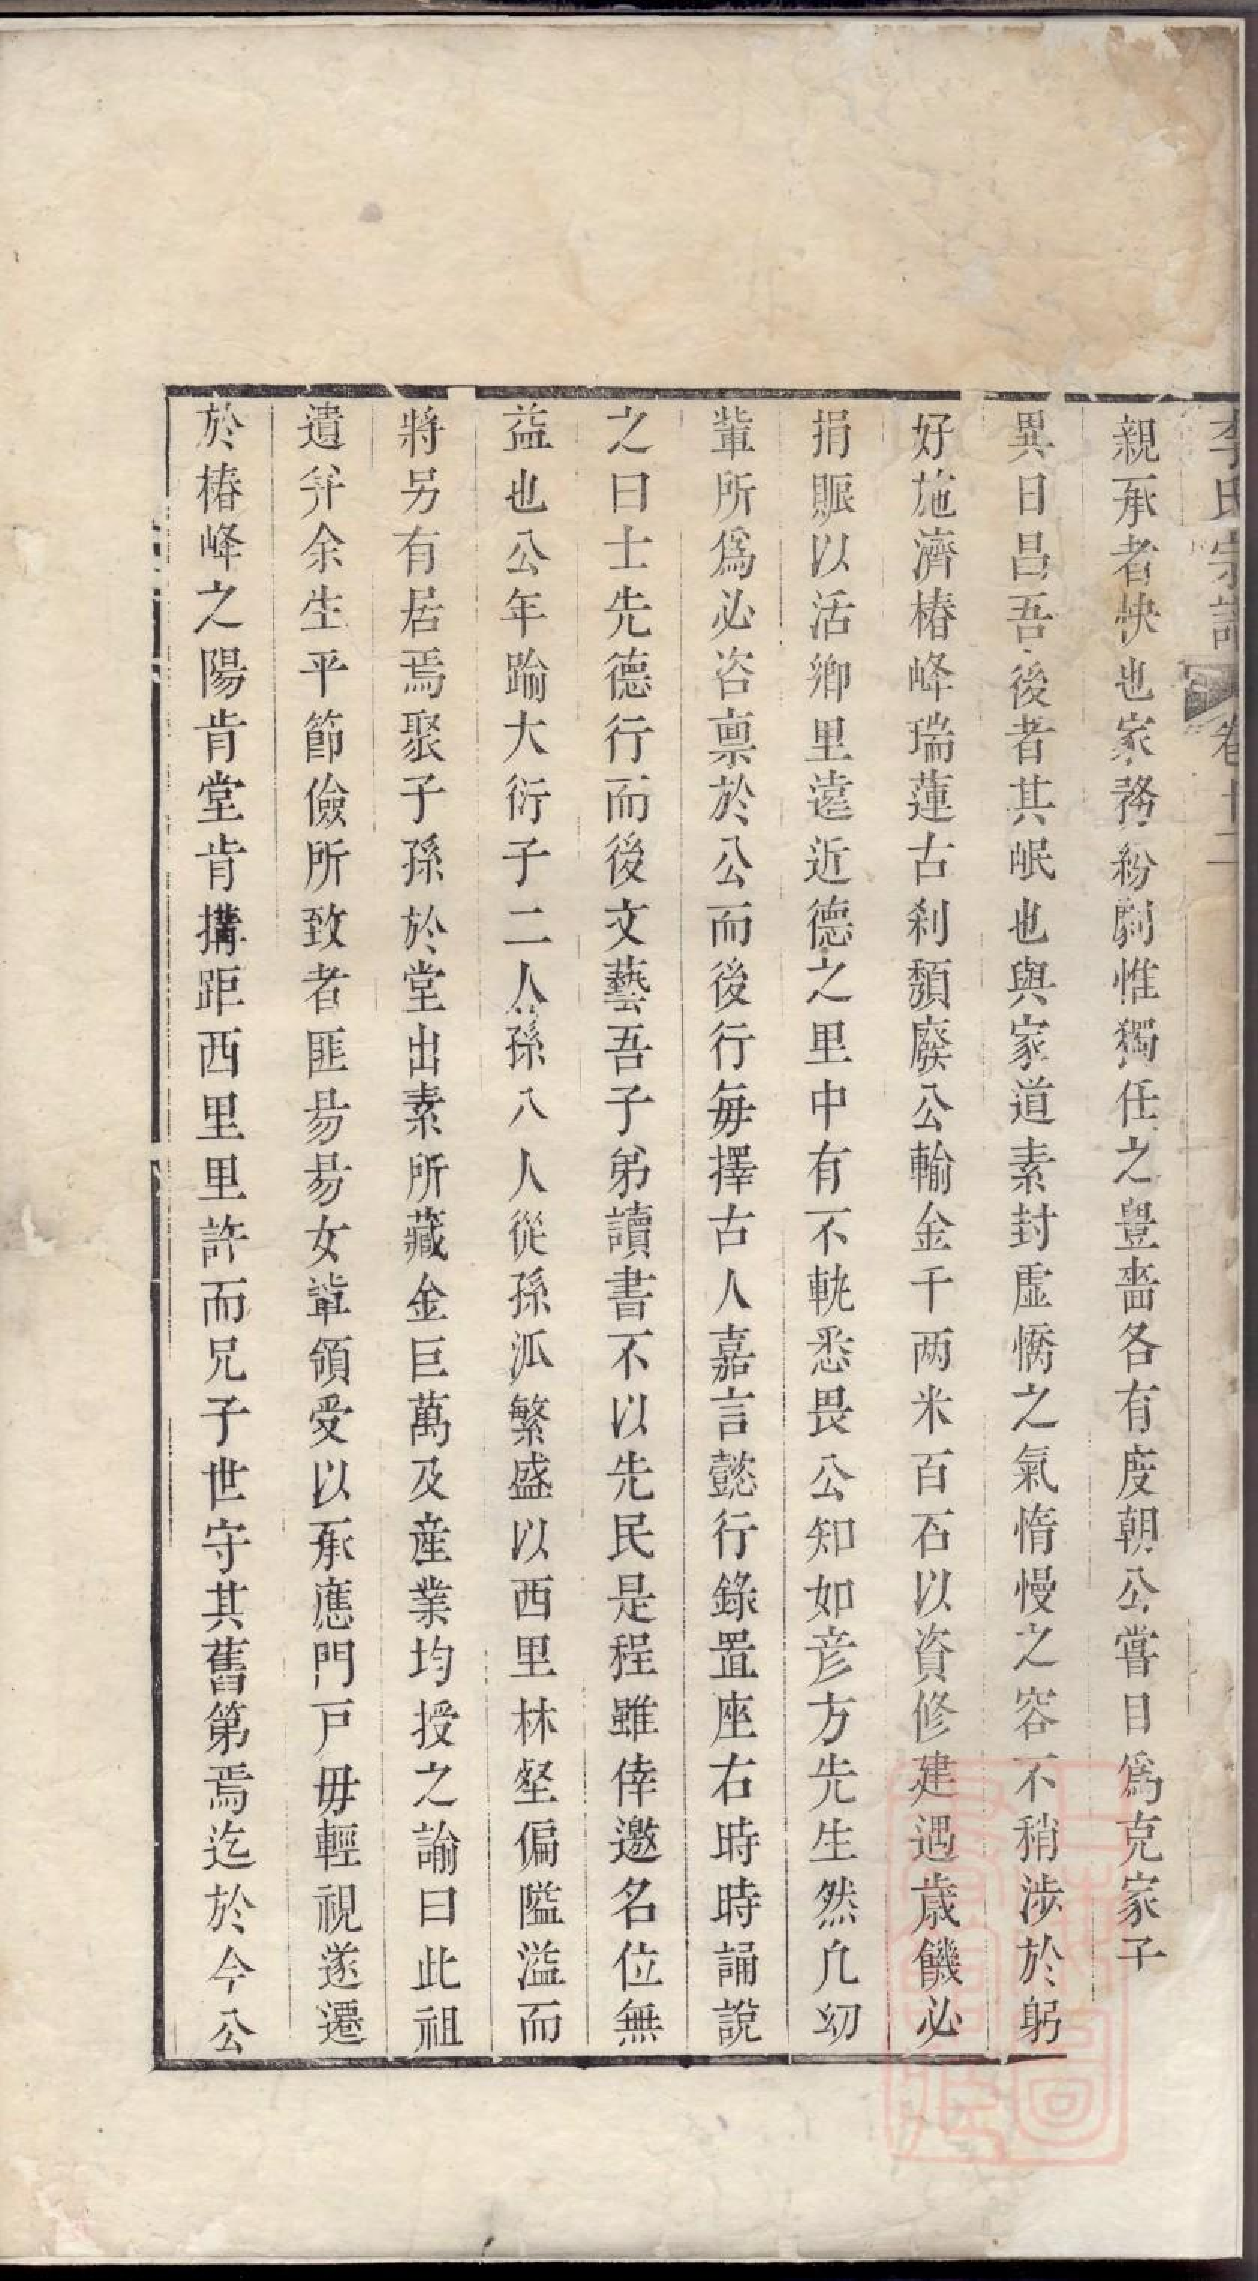 李氏宗譜 卷十二
親承者怏也家務紛劇惟獨任之豐嗇各有度朝公嘗曰爲克家子
異日昌吾後者其岷也與家道素封虛憍之氣惰慢之容不稍涉於躬
好施濟椿峰瑞蓮古刹頽廢公輸金千两米百石以資修建遇歲饑必
捐賑以活鄉里遠近德之里中有不軌悉畏公知如彦方先生然凡幼
輩所爲必咨禀於公而後行每擇古人嘉言懿行錄置座右時時誦說
之曰士先德行而後文藝吾子弟讀書不以先民是程雖倖邀名位無
益也公年踰大衍子二人孫八人從孫泒繁盛以西里林壑偏隘溢而
將另有居焉聚子孫於堂出素所藏金巨萬及産業均授之諭曰此祖
遺并余生平節儉所致者匪易易女軰領受以承應門戶毋輕視遂遷
於椿峰之陽肯堂肯搆距西里里許而兄子世守其舊第焉迄於今公